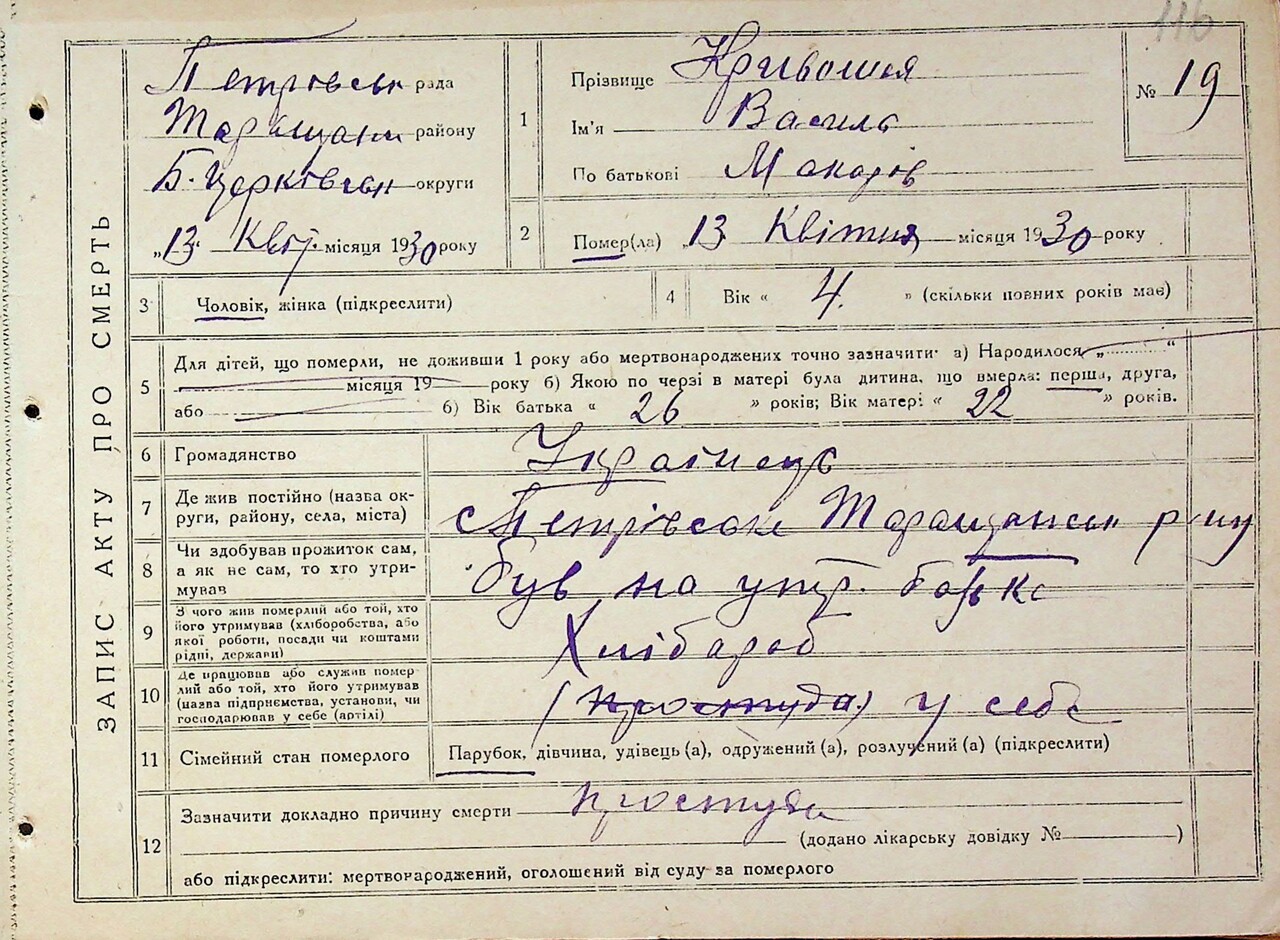 116
ЗАПИС АКТУ ПРО СМЕРТЬ
Петрівськ рада
Таращан району
Б. Церківськ округи
„13“ Квіт. місяця 1930 року
1
Прізвище Кривошия
Ім'я Василь
По батькові Макарів
№ 19
2
Помер(ла) „13 Квітня місяця 1930 року
3
Чоловік, жінка (підкреслити)
4
Вік « 4. » (скільки повних років має)
5
Для дітей, що померли, не доживши 1 року або мертвонароджених точно зазначити: а) Народилося „ “
місяця 19 року б) Якою по черзі в матері була дитина, що вмерла: перша, друга,
або б) Вік батька « 26 » років; Вік матері « 22 » років.
6
Громадянство Українець
7
Де жив постійно (назва ок-
руги, району, села, міста)
с Петрівське Таращанськ р-ну
8
Чи здобував прожиток сам,
а як не сам, то хто утри-
мував
був на утр. батька
9
З чого жив померлий або той, хто
його утримував (хліборобство, або
якої роботи, посади чи коштами
рідні, держави)
Хлібароб
10
Де працював або служив помер-
лий або той, хто його утримував
(назва підприємства, установи, чи
господарював у себе (артілі)
(простуда) у себе
11
Сімейний стан померлого
Парубок, дівчина, удівець (а), одружений (а), розлучений (а) (підкреслити)
12
Зазначити докладно причину смерти простуда
(додано лікарську довідку № )
або підкреслити: мертвонароджений, оголошений від суду за померлого